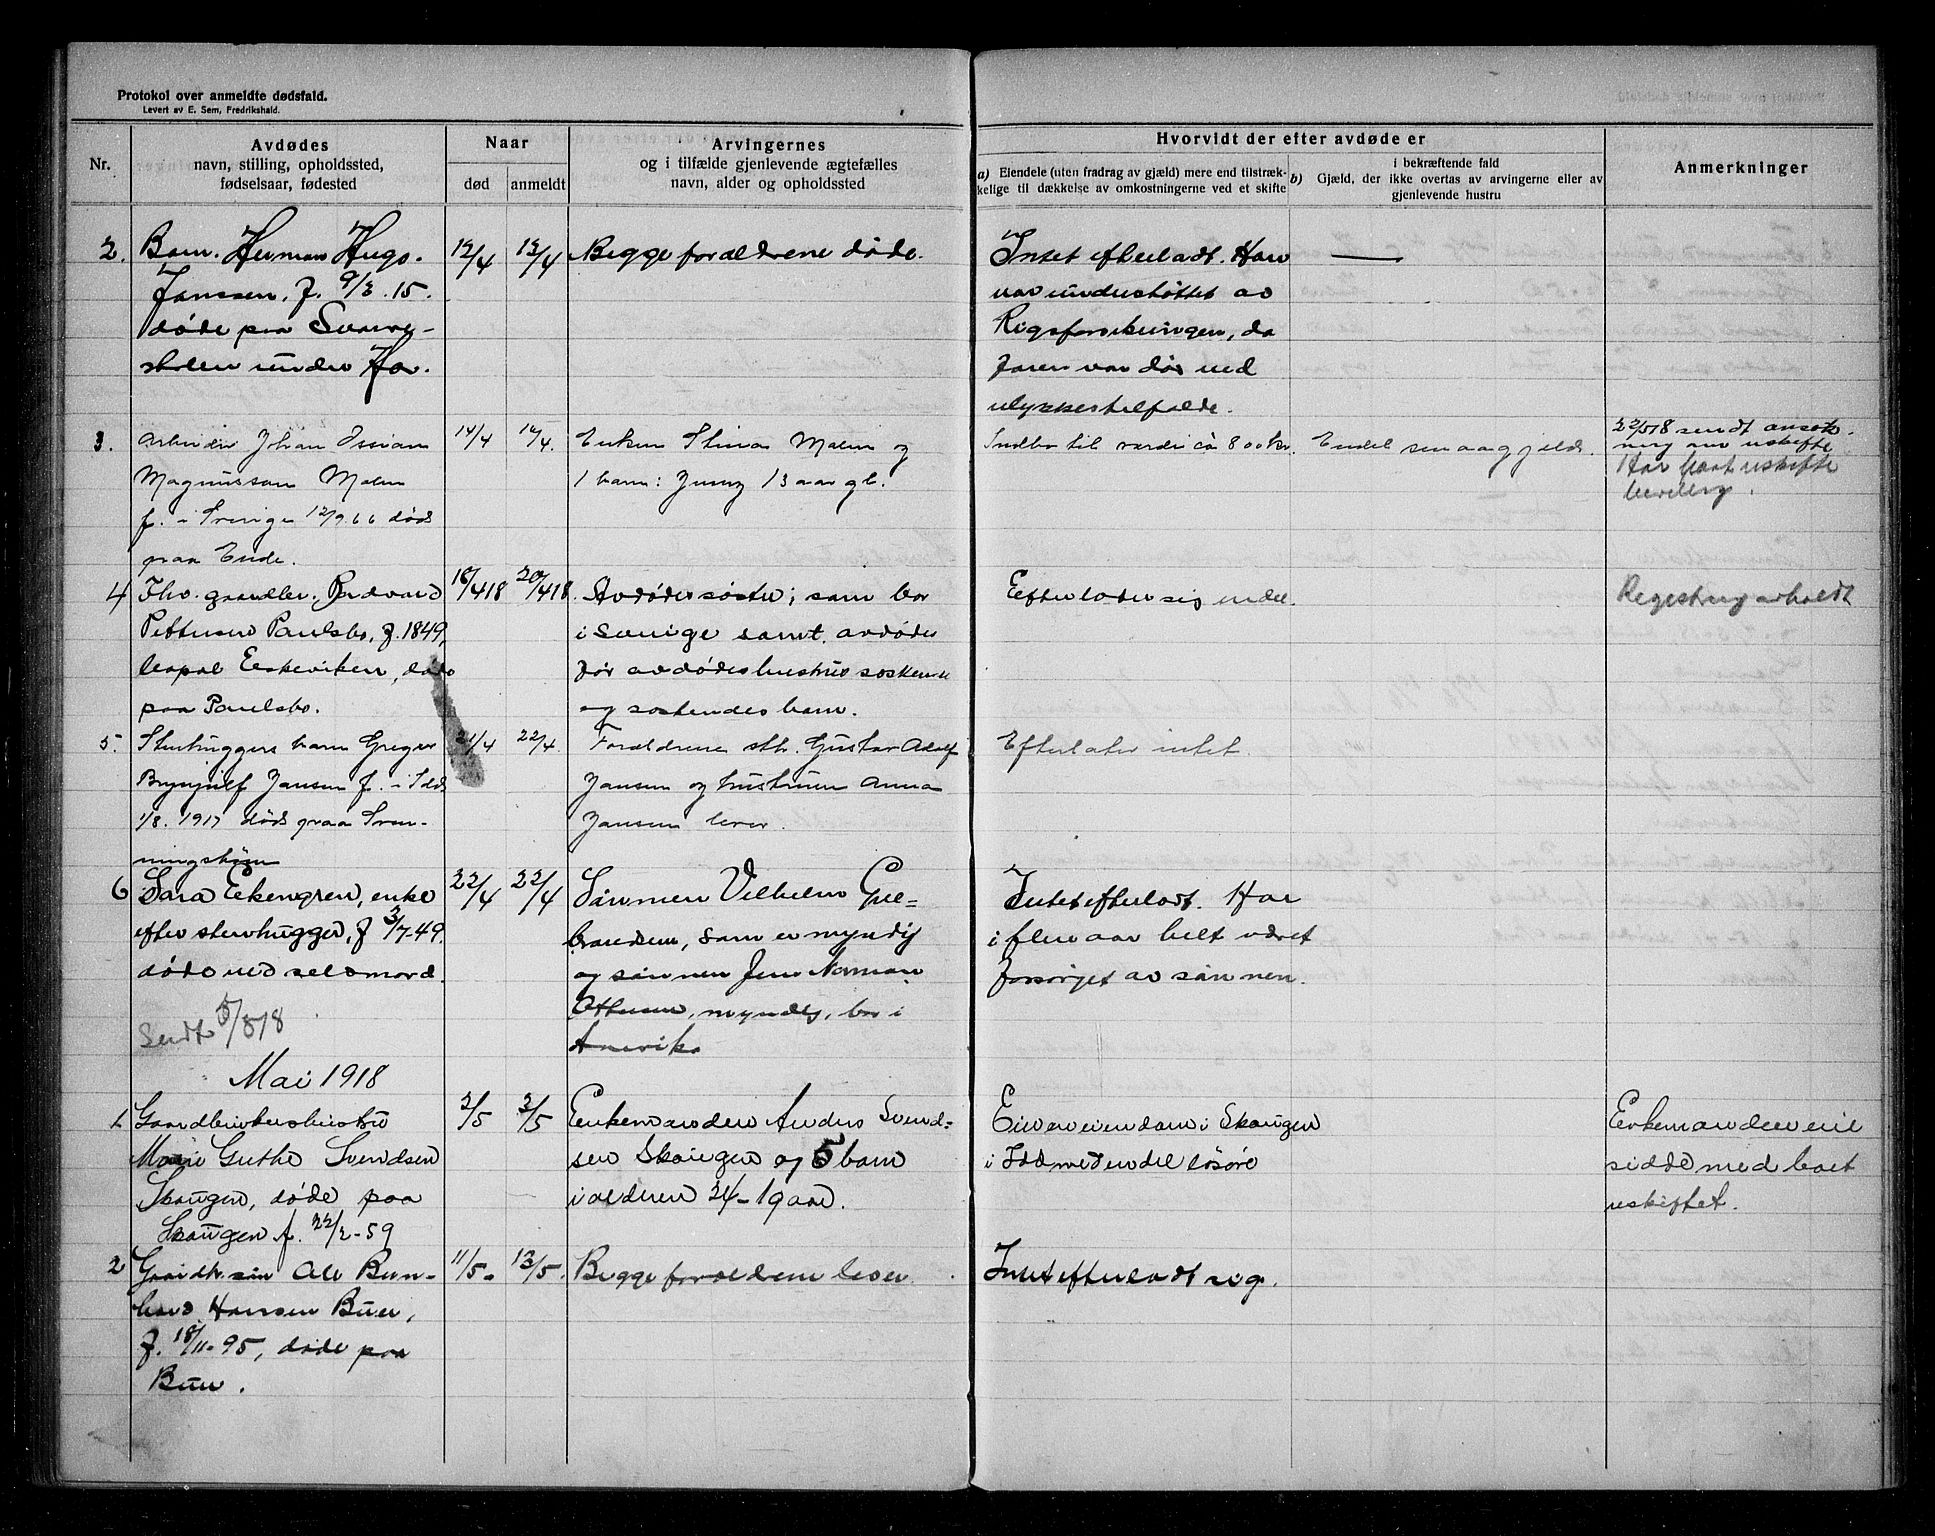 Protokol over anmeldte dødsfald.
Levert av E. Sem, Fredrikshald.
Nr.
Avdødes
navn, stilling, opholdssted,
fødselsaar, fødested
Naar
død
anmeldt
Arvingernes
og i tilfælde gjenlevende ægtefælles
navn, alder og opholdssted
Hvorvidt der efter avdøde er
a) Eiendele (uten fradrag av gjæld) mere end tilstræk-
kelige til dækkelse av omkostningerne ved et skifte
i bekræftende fald
b) Gjæld, der ikke overtas av arvingerne eller av
gjenlevende hustru
Anmerkninger
2. Barn. Herman Hugo.
Janssen, f. 9/3.15.
døde paa
under Ha.
12/4
13/4
Begge forældrene døde.
Intet efterladt. Han
var understøttet av
Rigsforsikringen, da
faren var død ved
ulykkestilfælde.
3. Arbeider Johan Ossian
Magnusson Malm
f. i Sverige 12/9.66 død
paa Ende.
14/4
16/4.
Enken Stina Malm og
1 barn: Jenny 13 aar gl.
Indbo til værdi ca 800 kr.
Endel smaagjæld.
22/518 sendt ansøk-
ning om uskifte
Har faat uskifte
bevilling.
4 Fhv. gaardbr. Edvard
Pettersen Paulsbo, f. 1849,
Eskeviken, døde
paa Paulsbo.
18/418
20/418.
Avdødes søster, som bor
i Sverige samt avdødes
før avdødes hustrus søskende
og søskendes barn.
Efterlater sig endel.
Registrering avholdt
5. Stenhuggers barn Greger
Brynjulf Jansen f. i Idd
1/8. 1917 død paa Sven-
ningsbøen
21/4
22/4.
Forældrene sth. Gustav Adolf
Jansen og hustruen Anna
Jansen lever.
Efterlater intet.
6 Sara Ekengren, enke
efter stenhugger, f 3/7.49.
døde ved selvmord.
22/4
22/4
Sønnen Vilhelm Gul-
brandsen, som er myndig
og sønnen Jens Norman
Ottesen, myndig, bor i
Amerika
Intet efterladt. Har
i flere aar helt været
forsørget av sønnen.
Sendt 5/518
Mai 1918
1. Gaardbrukerhustru
Marie Guthe Svendsen
Skaugen, døde paa
Skaugen f. 22/2-59
2/5
3/5
Enkemanden Anders Svend-
sen Skaugen og 5 barn
i alderen 34-19 aar.
Eier eiendom i Skaugen
i Idd med endel løsøre
Enkemanden vil
sidde med boet
uskiftet.
2 Gaardbr. søn Ole Bern-
hard Hansen Buer,
f. 18/11-95, døde paa
Buer.
11/5.
13/5.
Begge forældrene lever.
Intet efterladt sig.